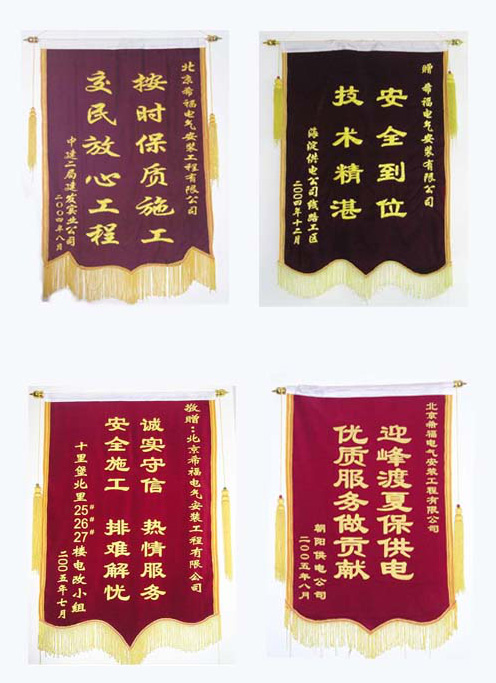 北京希福电气安装工程有限公司
按时保质施工
交民放心工程
中建二局建发实业公司
二〇〇四年八月
赠 希福电气安装有限公司
安全到位
技术精湛
海淀供电公司线路工区
二〇〇四年十二月
敬赠：北京希福电气安装工程有限公司
诚实守信 热情服务
安全施工 排难解忧
十里堡北里25#26#27#楼电改小组
二〇〇五年七月
北京希福电气安装工程有限公司
迎峰渡夏保供电
优质服务做贡献
朝阳供电公司
二〇〇五年八月